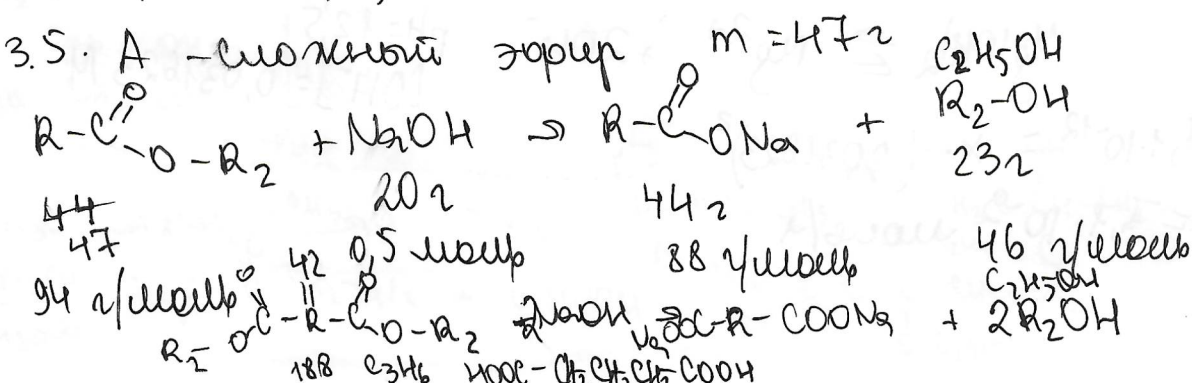 3.5. A - сложный эфир m = 47 г C₂H₅OH
R-C(=O)-O-R₂ + NaOH → R-C(=O)-ONa + R₂-OH
44 20 г 44 г 23 г
47 0,5 моль 88 г/моль 46 г/моль
94 г/моль 42 C₂H₅OH
R₂-O-C(=O)-R-C(=O)-O-R₂ 2NaOH NaOOC-R-COONa + 2R₂OH
188 C₃H₆ HOOC-CH₂CH₂CH₂-COOH